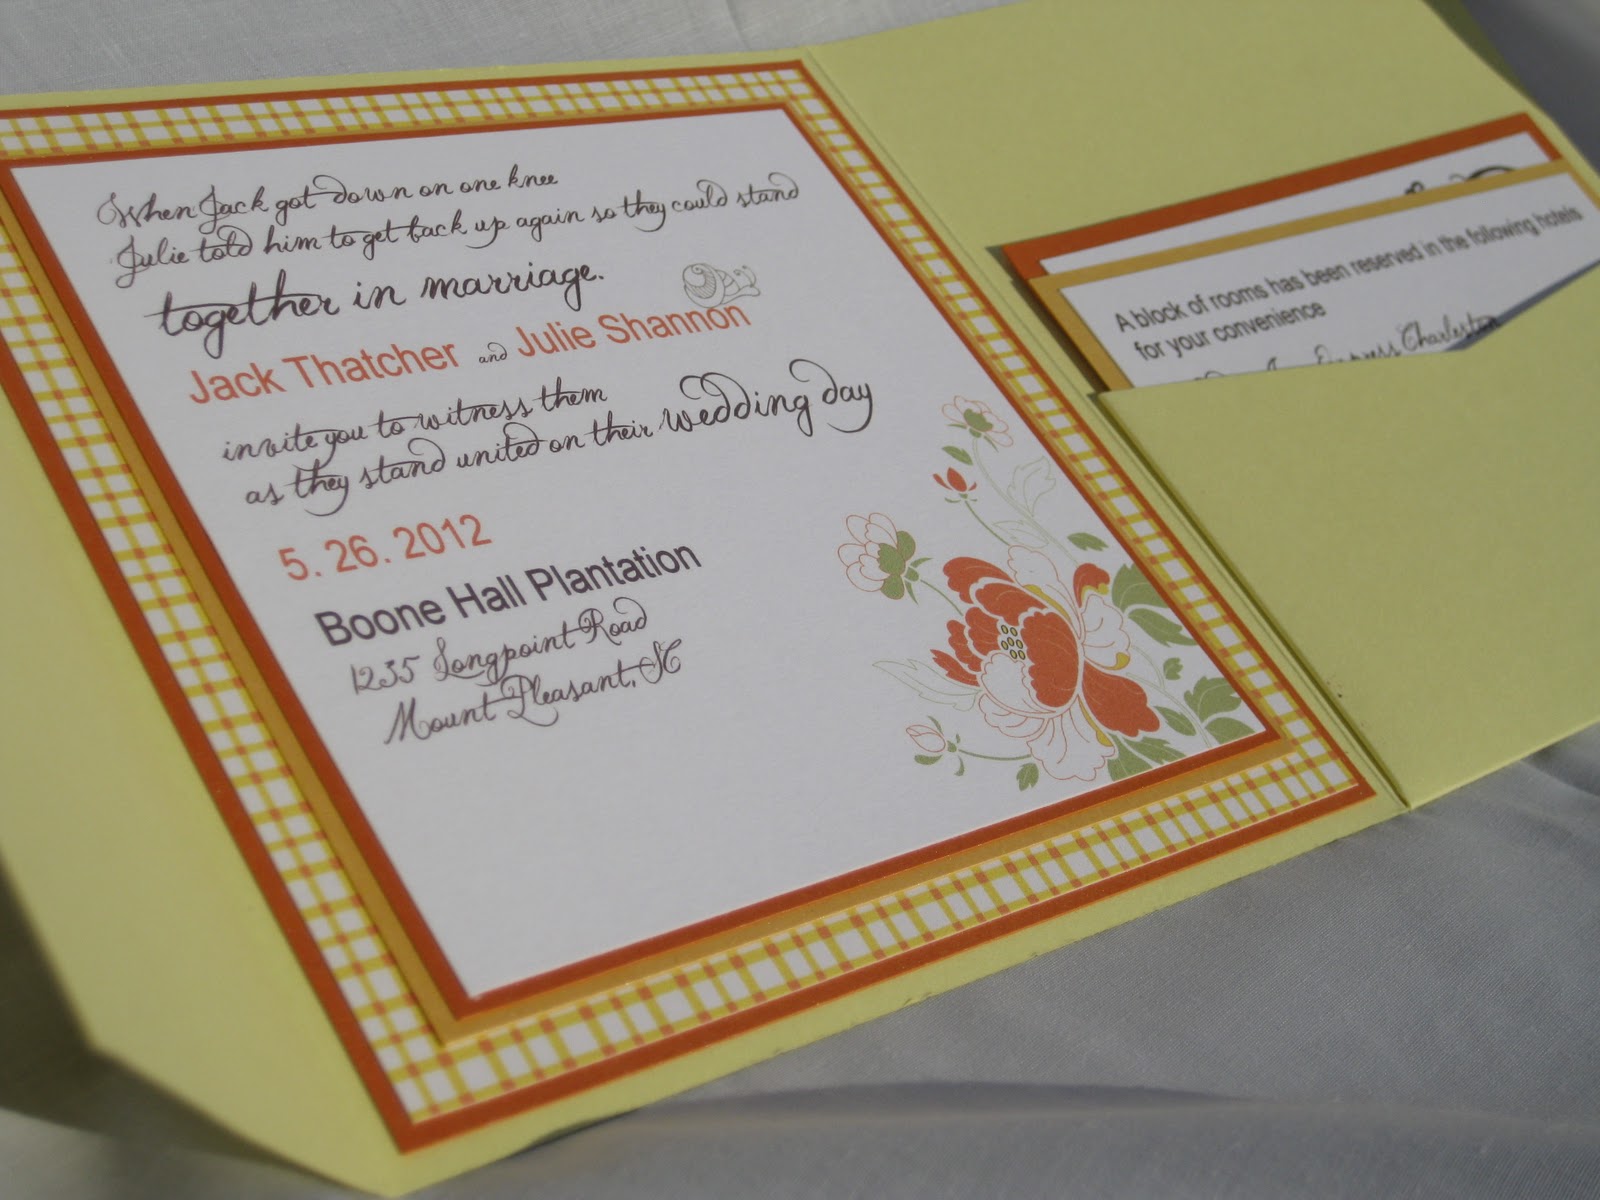 When Jack got down on one knee
Julie told him to get back up again so they could stand
together in marriage.
Jack Thatcher and Julie Shannon
invite you to witness them
as they stand united on their wedding day
5. 26. 2012
Boone Hall Plantation
1235 Longpoint Road
Mount Pleasant, SC
A block of rooms has been reserved in the following hotels
for your convenience
Express Charleston